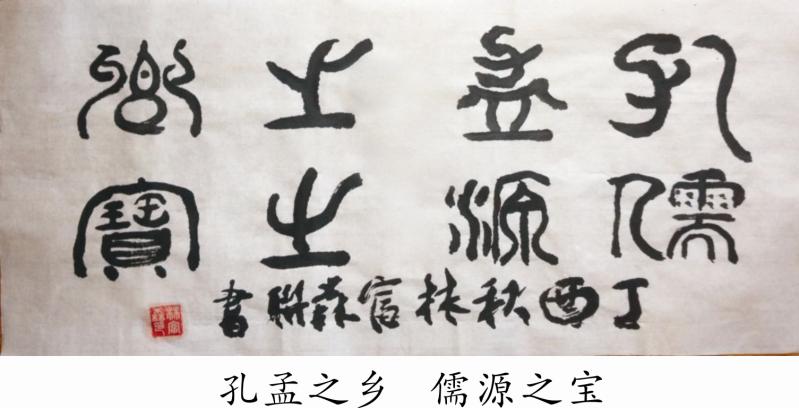 孔孟之鄉
儒源之寶
丁酉秋林富森聯書
孔孟之乡　儒源之宝